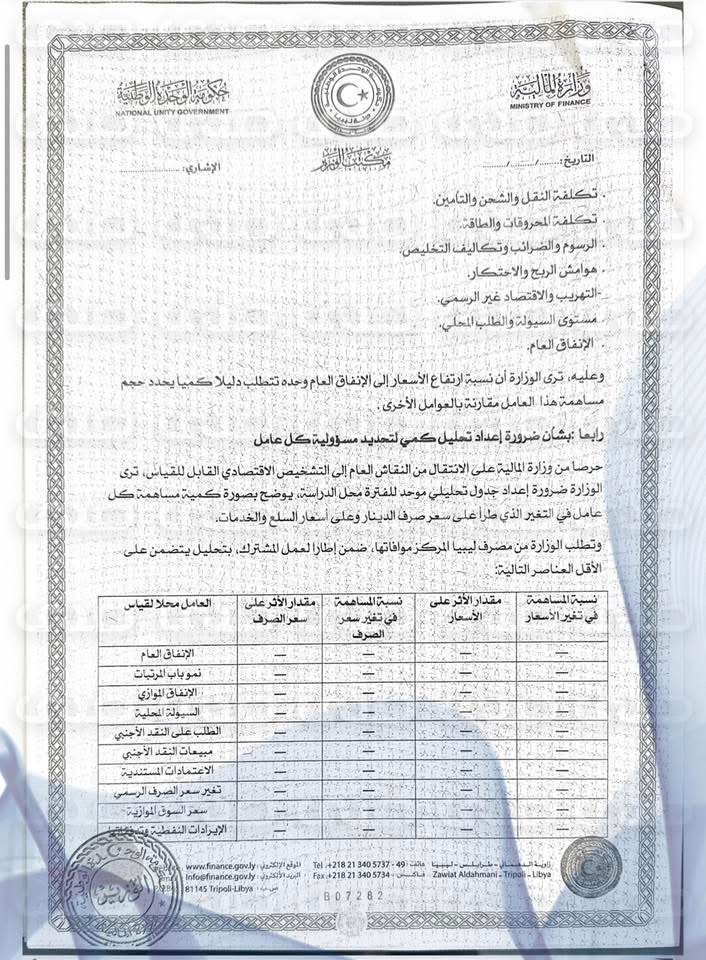 وزارة المالية
MINISTRY OF FINANCE
حكومة الوحدة الوطنية
NATIONAL UNITY GOVERNMENT
مكتب الوزير
التاريخ: ....../....../......
الإشاري: ..................
. تكلفة النقل والشحن والتأمين.
. تكلفة المحروقات والطاقة.
. الرسوم والضرائب وتكاليف التخليص.
. هوامش الربح والاحتكار.
-التهريب والاقتصاد غير الرسمي.
. مستوى السيولة والطلب المحلي.
. الإنفاق العام.
وعليه، ترى الوزارة أن نسبة ارتفاع الأسعار إلى الإنفاق العام وحده تتطلب دليلا كميا يحدد حجم
مساهمة هذا العامل مقارنة بالعوامل الأخرى.
رابعا :بشأن ضرورة إعداد تحليل كمي لتحديد مسؤولية كل عامل
حرصا من وزارة المالية على الانتقال من النقاش العام إلى التشخيص الاقتصادي القابل للقياس، ترى
الوزارة ضرورة إعداد جدول تحليلي موحد للفترة محل الدراسة، يوضح بصورة كمية مساهمة كل
عامل في التغير الذي طرأ على سعر صرف الدينار وعلى أسعار السلع والخدمات.
وتطلب الوزارة من مصرف ليبيا المركز موافاتها، ضمن إطارا لعمل المشترك، بتحليل يتضمن على
الأقل العناصر التالية:
العامل محلا لقياس
مقدار الأثر على سعر الصرف
نسبة المساهمة في تغير سعر الصرف
مقدار الأثر على الأسعار
نسبة المساهمة في تغير الأسعار
الإنفاق العام — — — —
نمو باب المرتبات — — — —
الإنفاق الموازي — — — —
السيولة المحلية — — — —
الطلب على النقد الأجنبي — — — —
مبيعات النقد الأجنبي — — — —
الاعتمادات المستندية — — — —
تغير سعر الصرف الرسمي — — — —
سعر السوق الموازية — — — —
الإيرادات النفطية — — — —
زاوية الدهماني - طرابلس - ليبيا
Zawiat Aldahmani - Tripoli - Libya
هاتف: Tel .+218 21 340 5737 - 49
فاكس: Fax .+218 21 340 5734
الموقع الإلكتروني: www.finance.gov.ly
البريد الإلكتروني: Info@finance.gov.ly
ص.ب: 81145 Tripoli-Libya
B07282